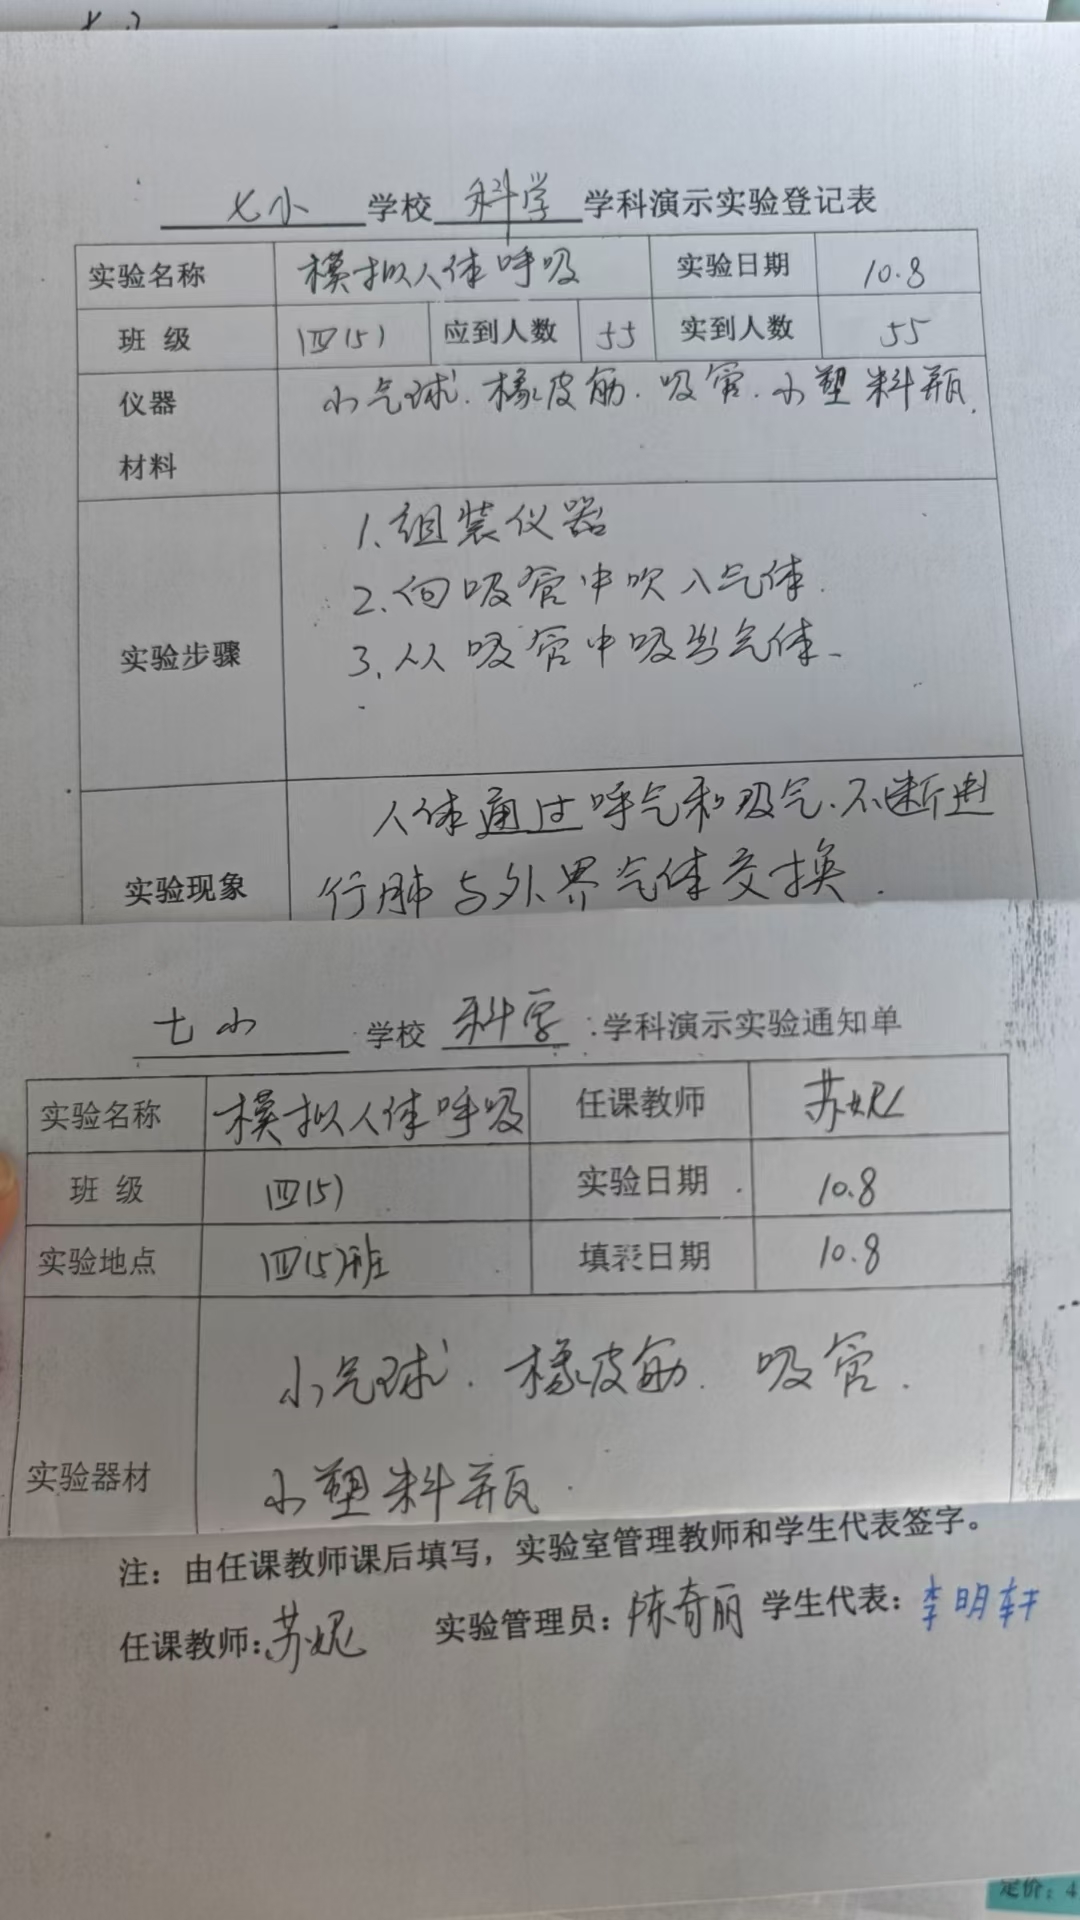 七小 学校 科学 学科演示实验登记表
实验名称 模拟人体呼吸 实验日期 10.8
班 级 四(5) 应到人数 55 实到人数 55
仪器 小气球.橡皮筋.吸管.小塑料瓶.
材料
1.组装仪器
2.向吸管中吹入气体.
实验步骤 3.从吸管中吸出气体.
人体通过呼气和吸气.不断进
实验现象 行肺与外界气体交换.
七小 学校 科学 学科演示实验通知单
实验名称 模拟人体呼吸 任课教师 苏妮
班 级 四(5) 实验日期 10.8
实验地点 四(5)班 填表日期 10.8
小气球.橡皮筋.吸管.
实验器材 小塑料瓶.
注：由任课教师课后填写，实验室管理教师和学生代表签字。
任课教师:苏妮 实验管理员：陈奇丽 学生代表：李明轩
定价：4